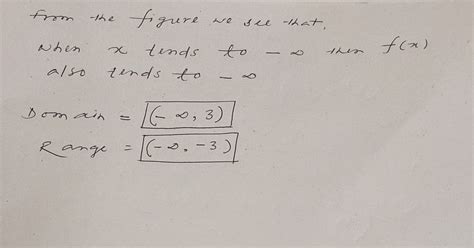 from the figure we see that,
when x tends to - ∞ then f(x)
also tends to - ∞
Domain = (- ∞, 3)
Range = (- ∞. -3)